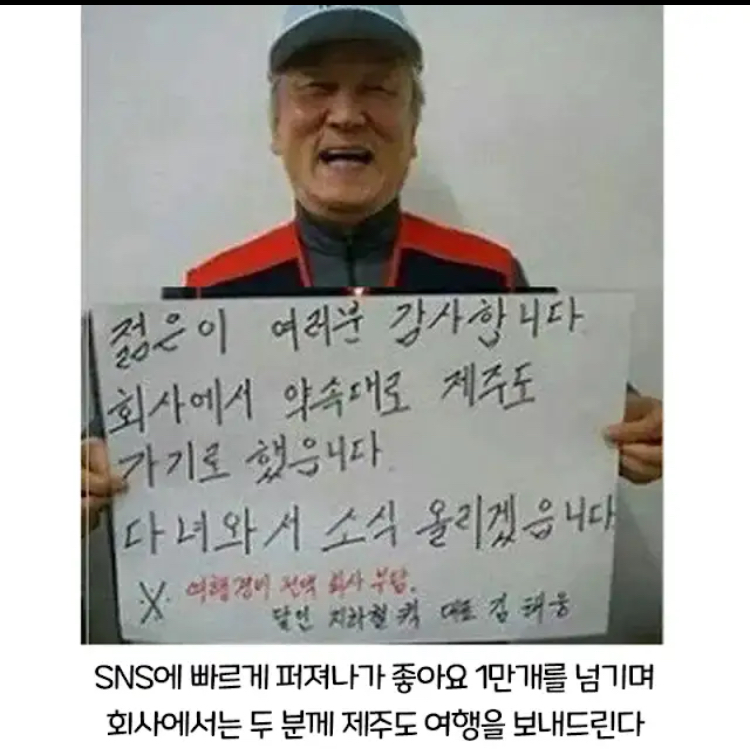 젊은이 여러분 감사합니다
회사에서 약속대로 제주도
가기로 했읍니다.
다녀와서 소식 올리겠읍니다
※ 여행경비 전액 회사 부담.
달인 지하철 퀵 대표 김태웅
SNS에 빠르게 퍼져나가 좋아요 1만개를 넘기며
회사에서는 두 분께 제주도 여행을 보내드린다